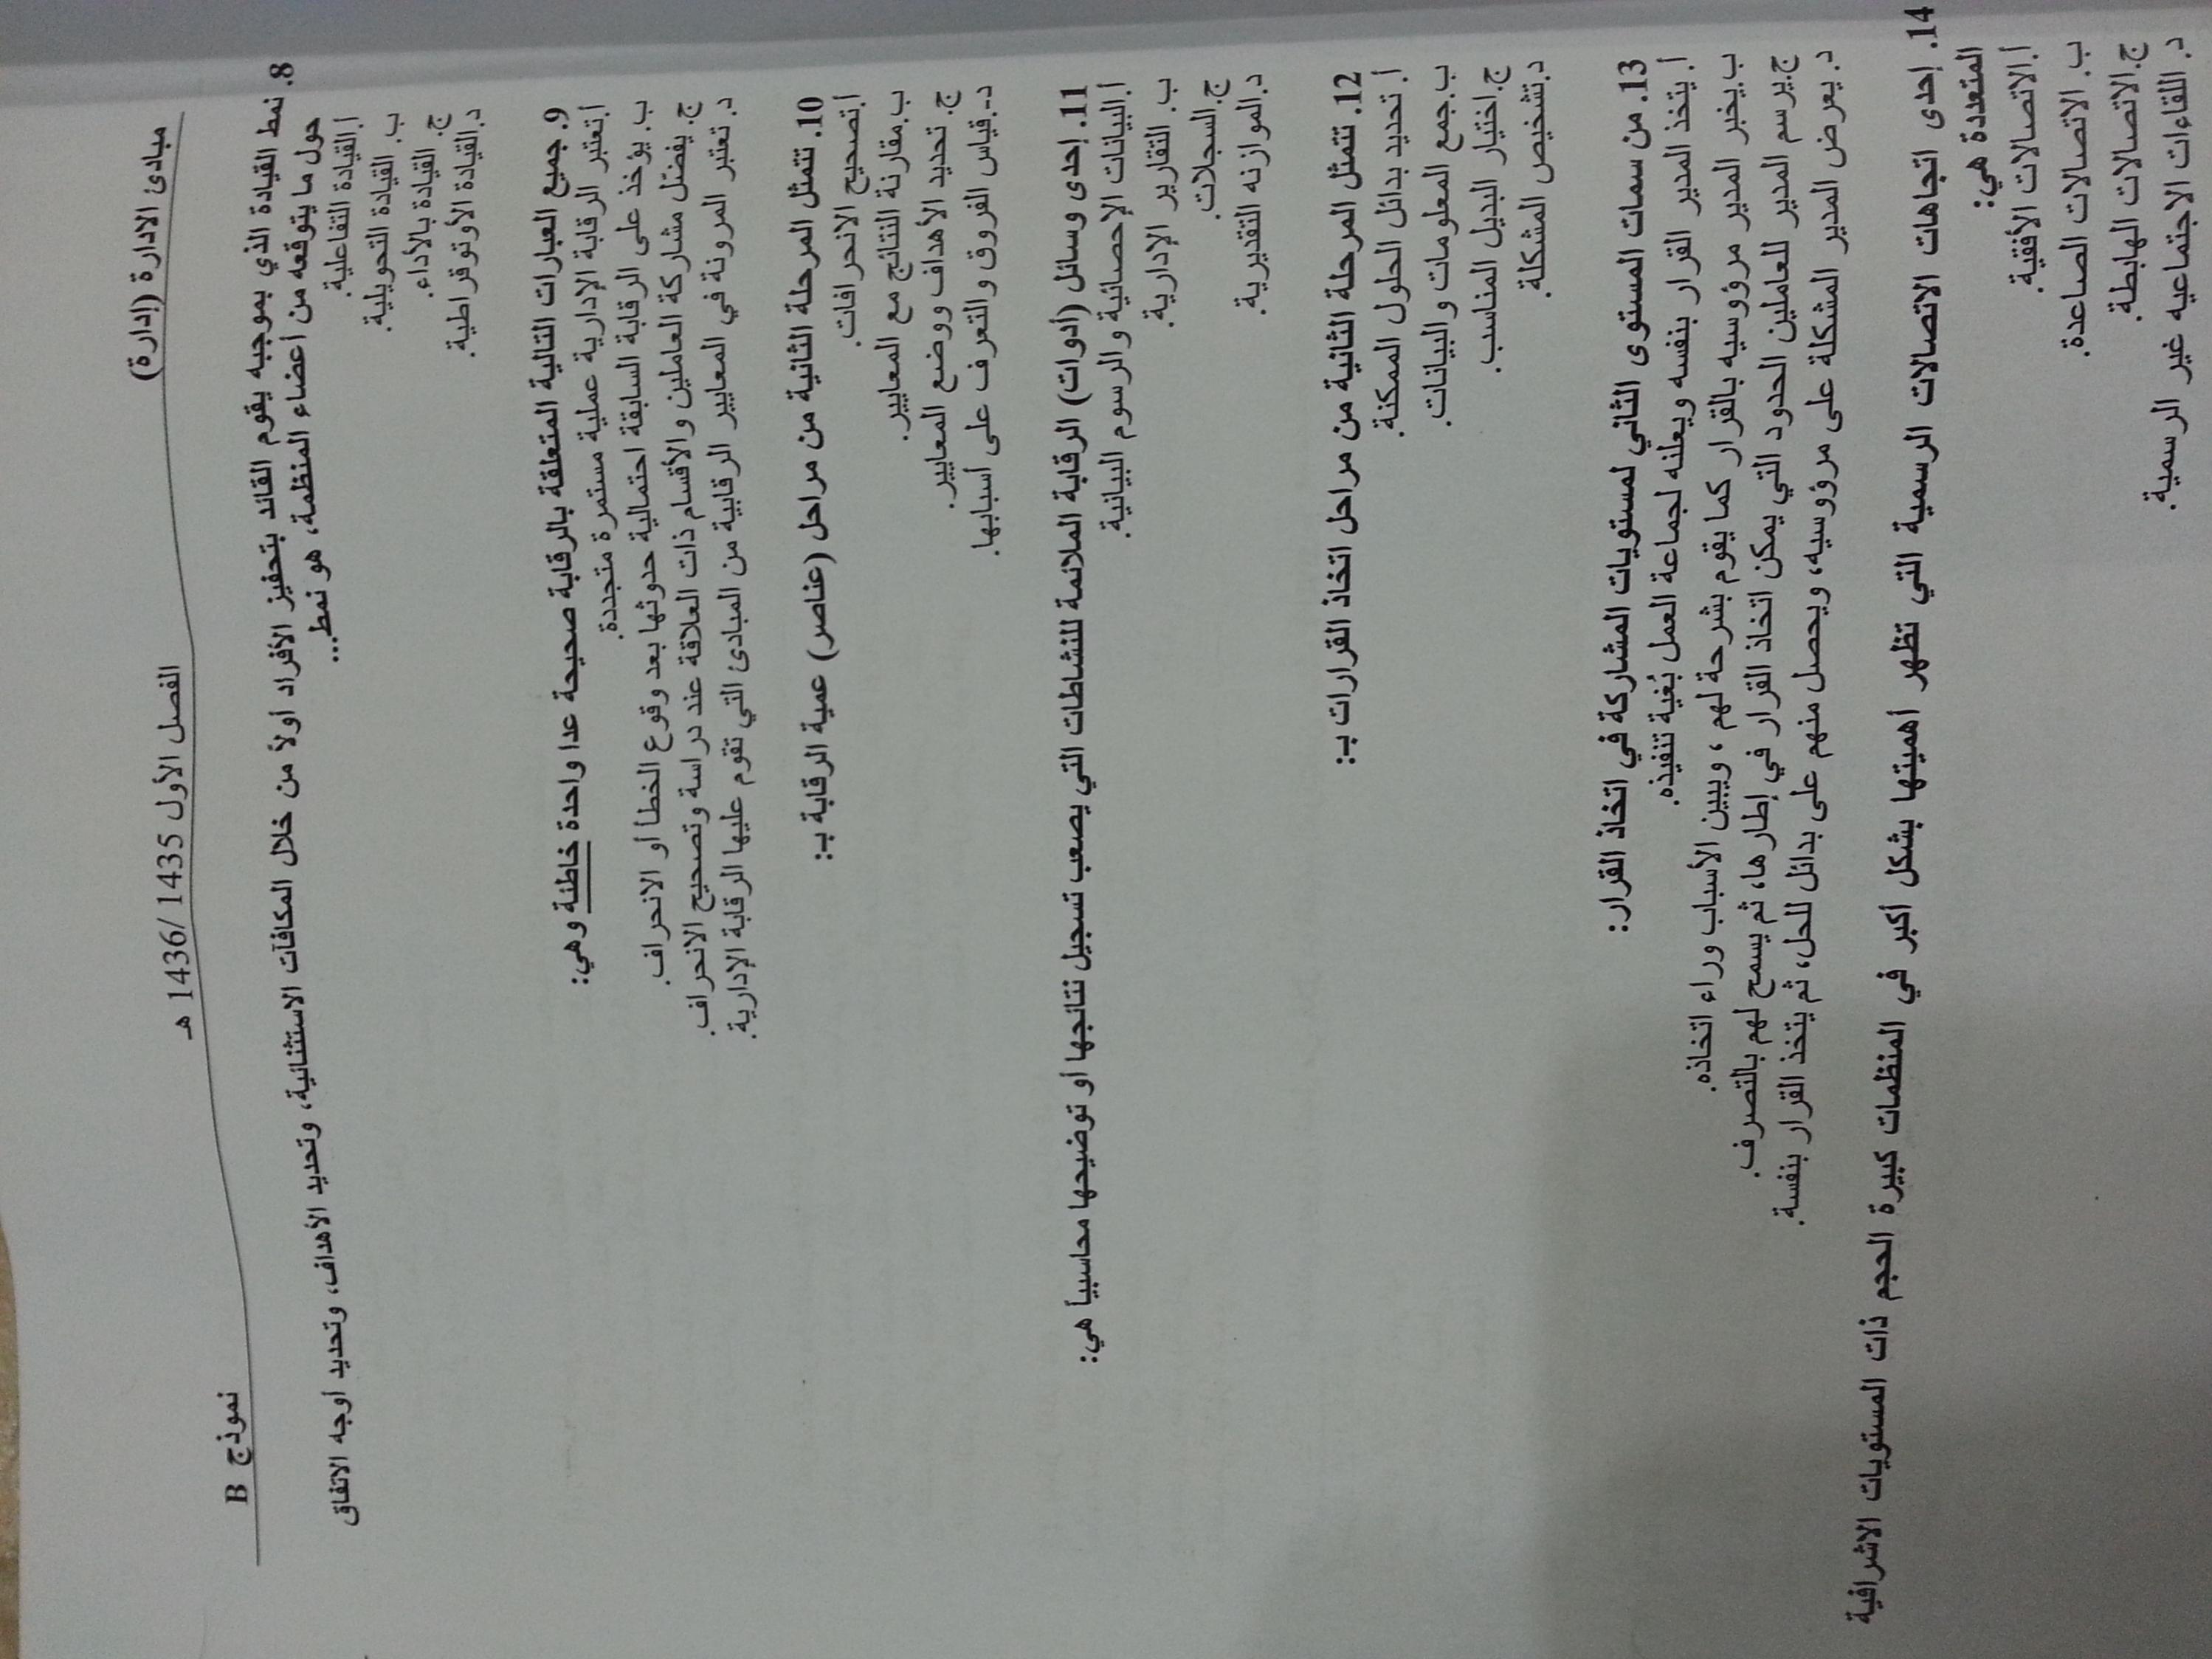 مبادئ الادارة (إدارة)
الفصل الأول 1435 /1436 هـ
نموذج B
8. نمط القيادة الذي بموجبه يقوم القائد بتحفيز الأفراد أولاً من خلال المكافآت الاستثنائية، وتحديد الأهداف، وتحديد أوجه الاتفاق
حول ما يتوقعه من أعضاء المنظمة، هو نمط...
أ.القيادة التفاعلية.
ب. القيادة التحويلية.
ج. القيادة بالأداء.
د.القيادة الأوتوقراطية.
9. جميع العبارات التالية المتعلقة بالرقابة صحيحة عدا واحدة خاطئة وهي:
أ.تعتبر الرقابة الإدارية عملية مستمرة متجددة.
ب. يؤخذ على الرقابة السابقة احتمالية حدوثها بعد وقوع الخطأ أو الانحراف.
ج. يفضل مشاركة العاملين والأقسام ذات العلاقة عند دراسة وتصحيح الانحراف.
د. تعتبر المرونة في المعايير الرقابية من المبادئ التي تقوم عليها الرقابة الإدارية.
10. تتمثل المرحلة الثانية من مراحل (عناصر) عمية الرقابة بـ:
أ.تصحيح الانحرافات.
ب.مقارنة النتائج مع المعايير.
ج. تحديد الأهداف ووضع المعايير.
د-.قياس الفروق والتعرف على أسبابها.
11. إحدى وسائل (أدوات) الرقابة الملائمة للنشاطات التي يصعب تسجيل نتائجها أو توضيحها محاسبياً هي:
أ.البيانات الإحصائية والرسوم البيانية.
ب. التقارير الإدارية.
ج.السجلات.
د.الموازنه التقديرية.
12. تتمثل المرحلة الثانية من مراحل اتخاذ القرارات بـ:
أ. تحديد بدائل الحلول الممكنة.
ب.جمع المعلومات والبيانات.
ج.اختيار البديل المناسب.
د.تشخيص المشكلة.
13. من سمات المستوى الثاني لمستويات المشاركة في اتخاذ القرار:
أ. يتخذ المدير القرار بنفسه ويعلنه لجماعة العمل بُغية تنفيذه.
ب.يخبر المدير مرؤوسيه بالقرار كما يقوم بشرحة لهم ، ويبين الأسباب وراء اتخاذه.
ج.يرسم المدير للعاملين الحدود التي يمكن اتخاذ القرار في إطارها، ثم يسمح لهم بالتصرف.
د. يعرض المدير المشكلة على مرؤوسيه، ويحصل منهم على بدائل للحل، ثم يتخذ القرار بنفسة.
14. إحدى اتجاهات الاتصالات الرسمية التي تظهر أهميتها بشكل أكبر في المنظمات كبيرة الحجم ذات المستويات الاشرافية
المتعددة هي:
أ.الاتصالات الأفقية.
ب. الاتصالات الصاعدة.
ج.الاتصالات الهابطة.
د. اللقاءات الاجتماعيه غير الرسمية.